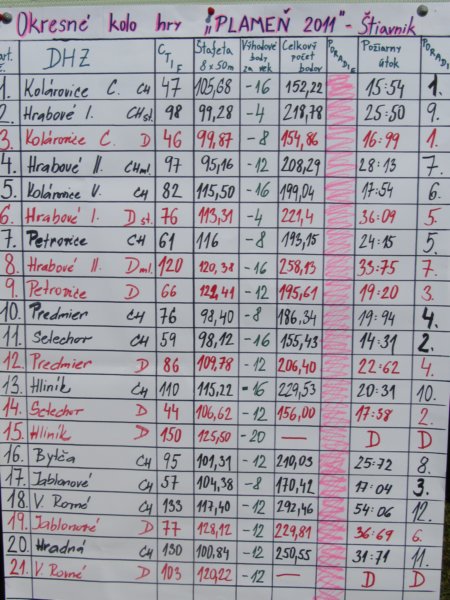 Okresné kolo hry „PLAMEŇ 2011" - Štiavnik
DHZ CTIF Štafeta 8x50m Výhodové body za vek Celkový počet bodov PORADIE Požiarny útok PORADIE
1. Kolárovice C. CH 47 105,68 -16 152,22 15:54 1.
2. Hrabové I. CHst. 98 99,28 -4 218,78 25:50 9.
3. Kolárovice C. D 46 99,87 -8 154,86 16:99 1.
4. Hrabové II. CHml. 97 95,16 -12 208,29 28:13 7.
5. Kolárovice V. CH 82 115,50 -16 199,04 17:54 6.
6. Hrabové I. D st. 76 113,31 -4 221,4 36:09 5.
7. Petrovice CH 61 116 -8 193,15 24:15 5.
8. Hrabové II. Dml. 120 120,38 -16 258,13 33:75 7.
9. Petrovice D 66 122,41 -12 195,61 19:20 3.
10. Predmier CH 76 98,40 -8 186,34 19:94 4.
11. Setechov CH 59 98,12 -16 155,43 14:31 2.
12. Predmier D 86 109,78 -12 206,40 22:62 4.
13. Hliník CH 110 115,22 -16 229,53 20:31 10.
14. Setechov D 44 106,62 -12 156,00 17:38 2.
15. Hliník D 150 125,50 -20 — D D
16. Bytča CH 95 101,31 -12 210,03 25:72 8.
17. Jablonové CH 57 104,38 -8 170,42 17:04 3.
18. V. Rovné CH 133 117,40 -12 292,46 54:06 12.
19. Jablonové D 77 128,12 -12 229,81 36:69 6.
20. Hradná CH 130 100,84 -12 250,55 31:71 11.
21. V. Rovné D 103 120,22 -12 — D D